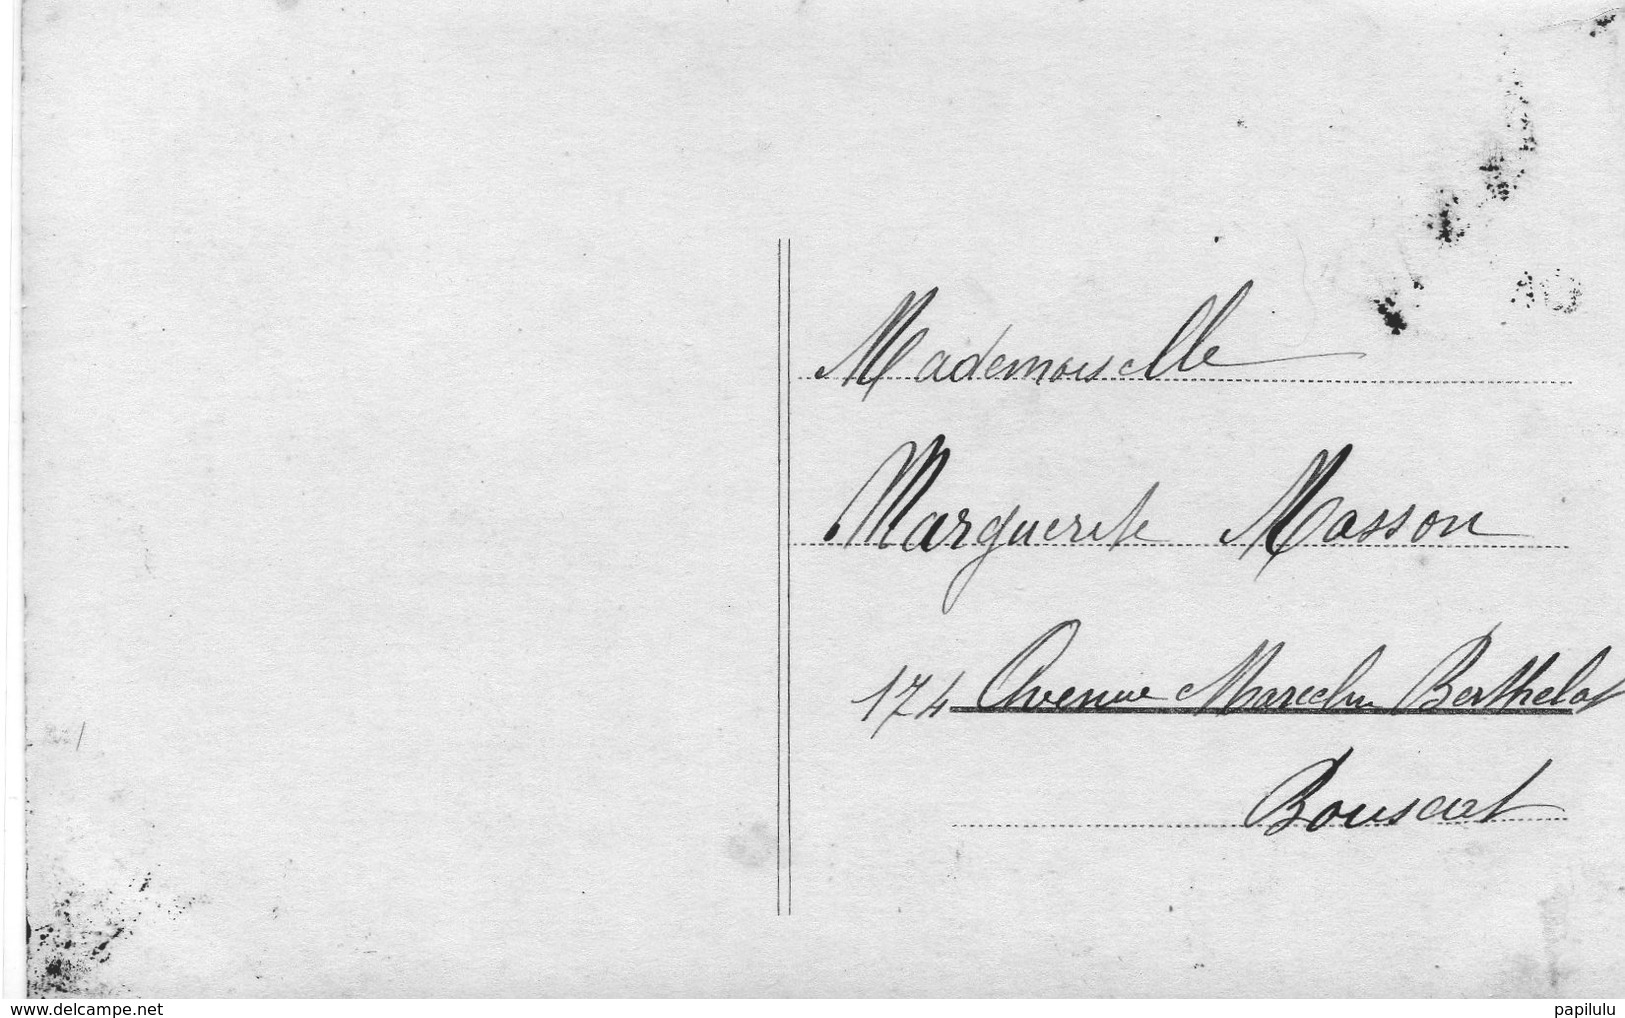 Mademoiselle
Marguerite Masson
174 Avenue Marcelin Berthelot
Bouscat
www.delcampe.net
papilulu